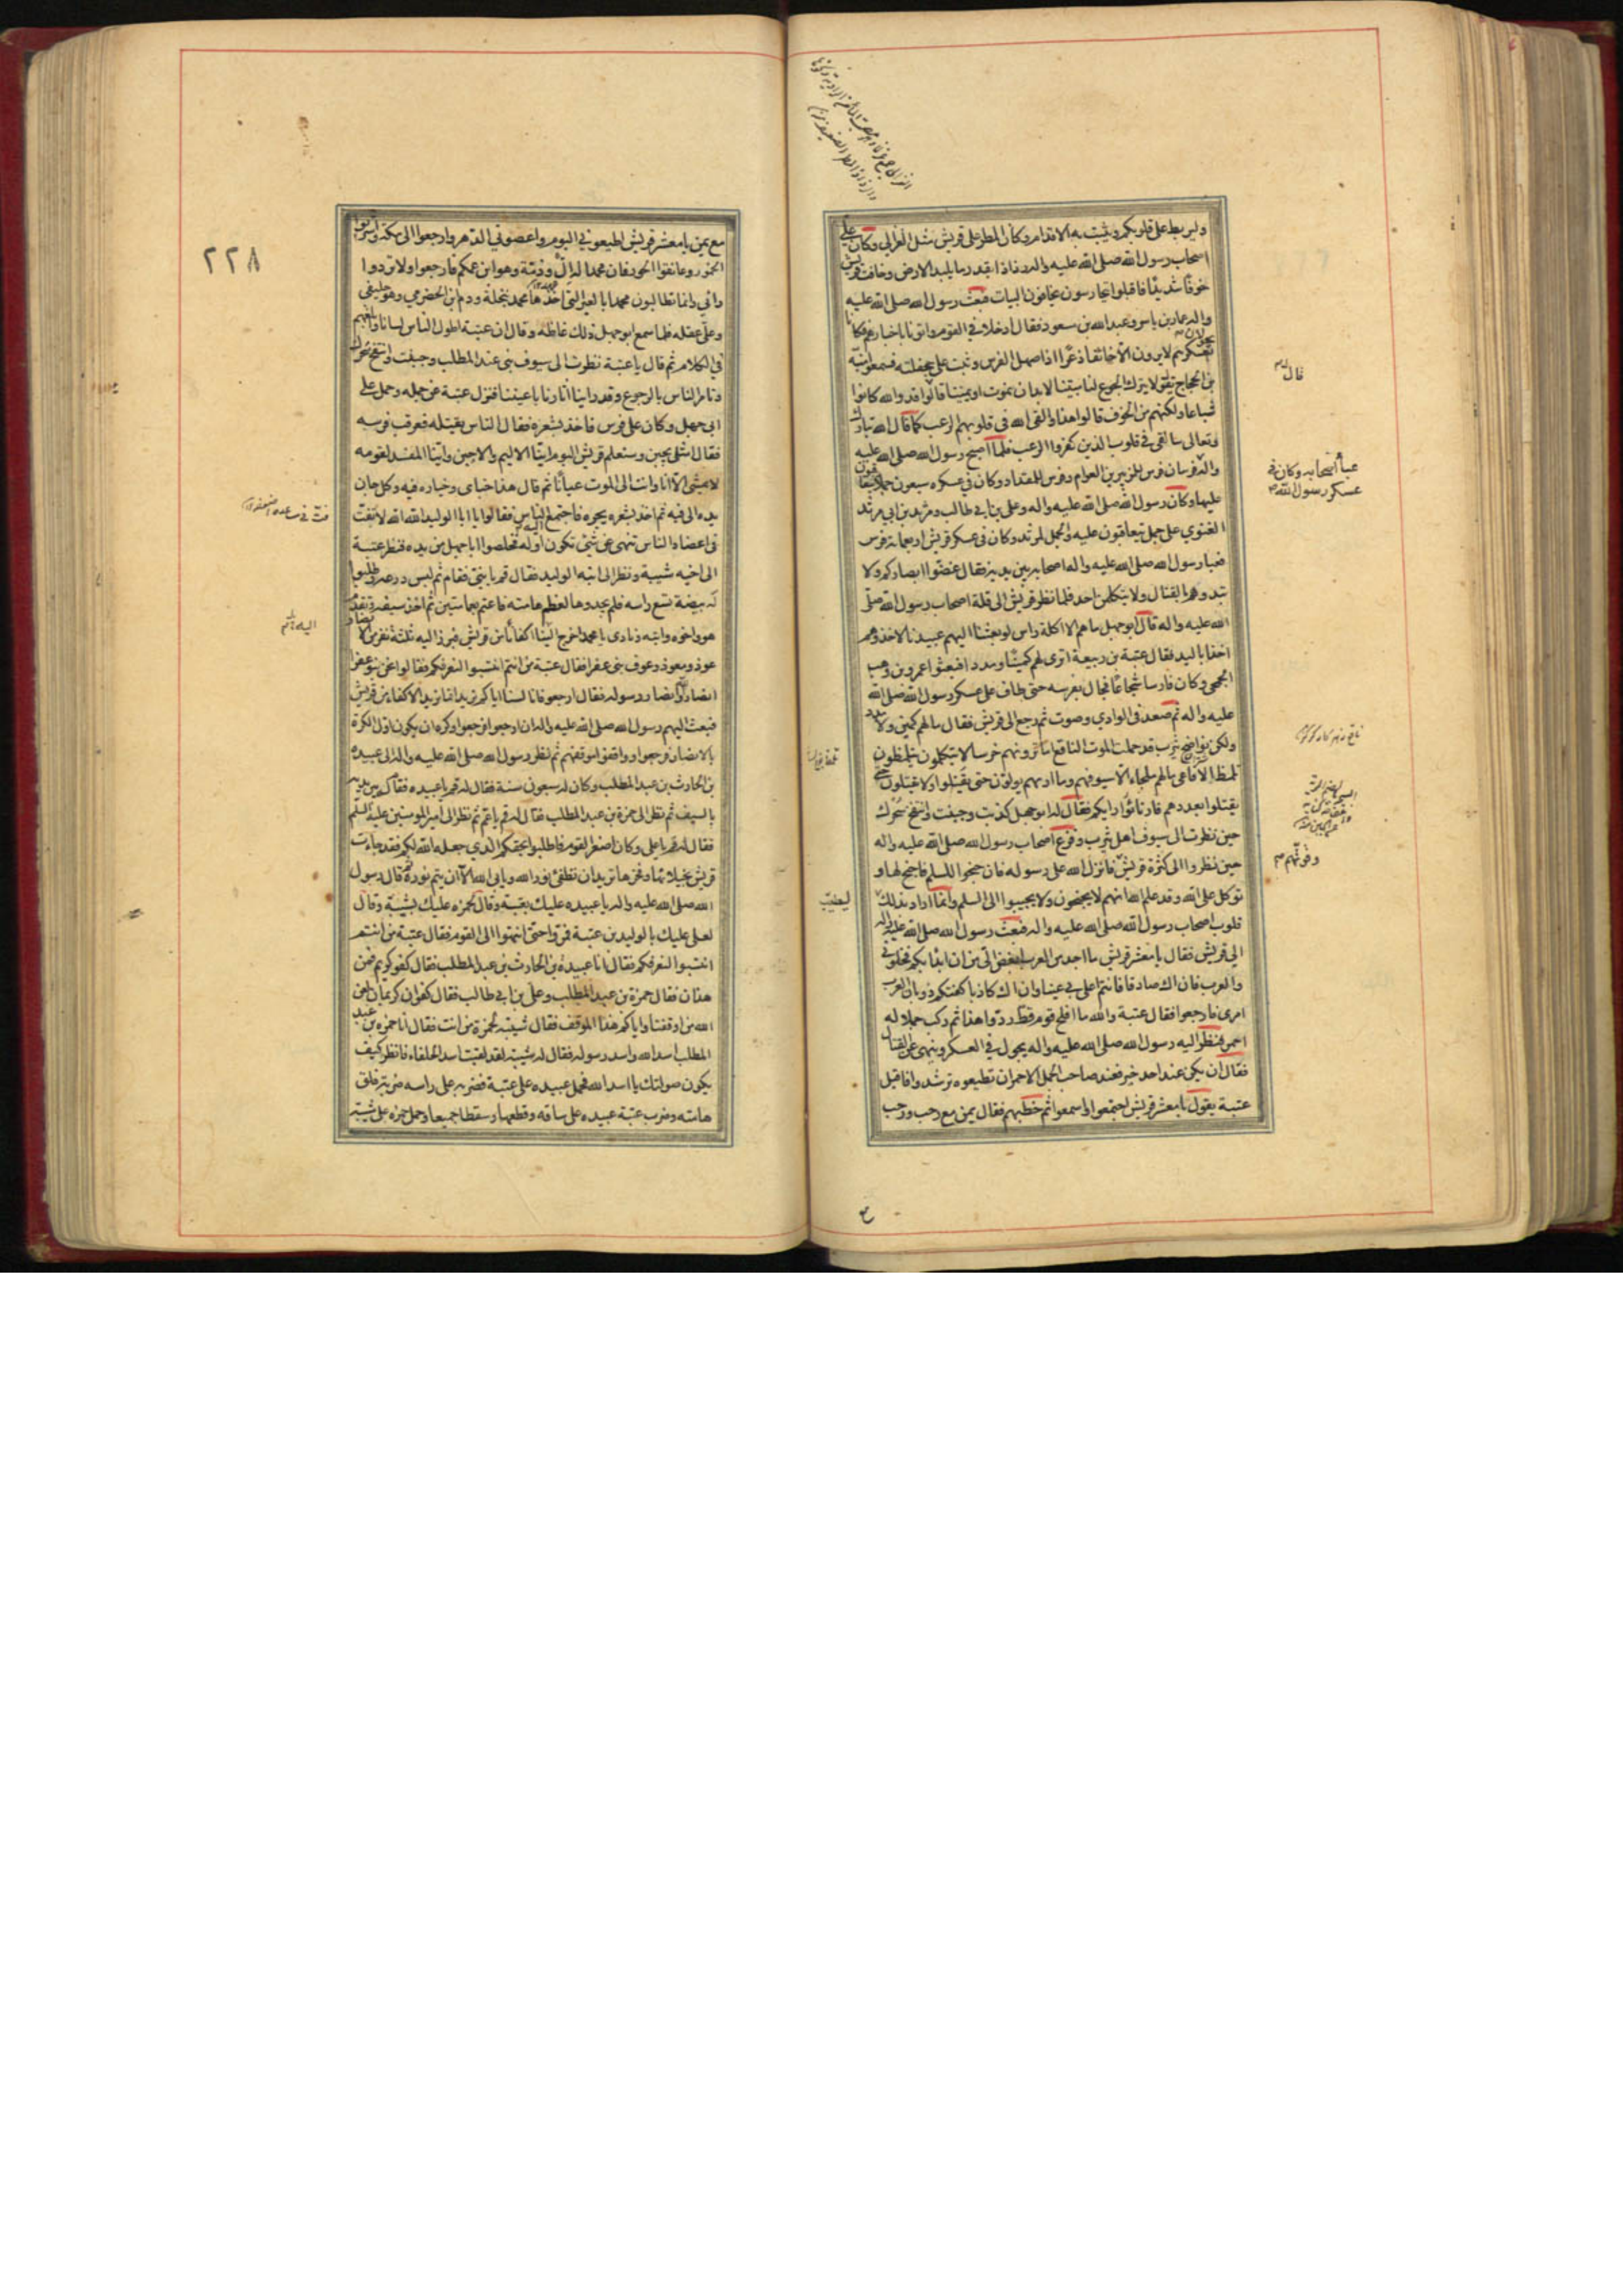 وليربط على قلوبكم ويثبت به الاقدام وكان المطر على قريش مثل الغزالي وكان على
اصحاب رسول الله صلى الله عليه واله رذاذا بقدر ما يلبد الارض وخافت قريش
خوفا شديدا فاقبلوا يتحارسون يخافون البيات فبعث رسول الله صلى الله عليه
واله عمار بن ياسر وعبد الله بن مسعود فقال ادخلا في القوم واتونا باخبارهم فكانا
يجولان بعسكرهم لا يرون الا خائفا ذعرا اذا صهل الفرس وثب على جحفلته فسمعوا منبه
بن الحجاج يقول لا يترك الجوع لنا مبيتا لا بد ان نموت او نميتنا قالوا قد والله كانوا
شباعا ولكنهم من الخوف قالوا هذا والقى الله في قلوبهم الرعب كما قال الله تبارك
وتعالى سالقى في قلوب الذين كفروا الرعب فلما اصبح رسول الله صلى الله عليه
واله فرسان فرس للزبير بن العوام وفرس للمقداد وكان في عسكره سبعون جملا يتعاقبون
عليها وكان رسول الله صلى الله عليه واله وعلي بن ابي طالب ومرثد بن ابي مرثد
الغنوي على جمل يتعاقبون عليه والجمل لمرثد وكان في عسكر قريش اربعمائة فرس
فعبا رسول الله صلى الله عليه واله اصحابه بين يديه فقال غضوا ابصاركم ولا
تبدوهم بالقتال ولا يتكلمن احد فلما نظر قريش الى قلة اصحاب رسول الله صلى
الله عليه واله قال ابو جهل ما هم الا اكلة راس لو بعثنا اليهم عبيدنا لاخذوهم
اخذا باليد فقال عتبة بن ربيعة اترى لهم كمينا ومددا فبعثوا عمرو بن وهب
الجمحي وكان فارسا شجاعا فجال بفرسه حتى طاف على عسكر رسول الله صلى الله
عليه واله ثم صعد في الوادي وصوت ثم رجع الى قريش فقال ما لهم كمين ولا مدد
ولكن نواضح يثرب قد حملت الموت الناقع اما ترونهم خرسا لا يتكلمون يتلمظون
تلمظ الافاعي ما لهم ملجاء الا سيوفهم وما اريهم يولون حتى يقتلوا ولا يقتلون حتى
يقتلوا بعددهم فارتاؤا رايكم فقال له ابو جهل كذبت وجبنت وانتفخ سحرك
حين نظرت الى سيوف اهل يثرب وفزع اصحاب رسول الله صلى الله عليه واله
حين نظروا الى كثرة قريش فانزل الله على رسوله فان جنحوا للسلم فاجنح لها و
توكل على الله وقد علم الله انهم لا يجنحون ولا يجيبوا الى السلم وانما اراد بذلك
قلوب اصحاب رسول الله صلى الله عليه واله فبعث رسول الله صلى الله عليه واله
الى قريش فقال يا معشر قريش ما احد من العرب ابغض الي من ان ابدا بكم فخلوني
والعرب فان اك صادقا فانتم اعلى بي عينا وان اك كاذبا كفتكم ذوبان العرب
امري فارجعوا فقال عتبة والله ما افلح قوم قط ردوا هذا ثم ركب جملا له
احمر فنظر اليه رسول الله صلى الله عليه واله يجول في العسكر وينهى عن القتال
فقال ان يكن عند احد خير فعند صاحب الجمل الاحمر ان تطيعوه ترشدوا فاقبل
عتبة يقول يا معشر قريش اجتمعوا واسمعوا ثم خطبهم فقال يمن مع رحب ورحب
قال
عبأ اصحابه وكان في
عسكر رسول الله ص
وقوتهم
ليطيب
٢٢٨
مع يمن يا معشر قريش اطيعوني اليوم واعصوني الدهر وارجعوا الى مكة واشربوا
الخمور وعانقوا الحور فان محمدا له ال وذمة وهو ابن عمكم فارجعوا ولا تردوا
رائي وانما تطالبون محمدا بالعير التي اخذها محمد بنخلة ودم ابن الحضرمي وهو حليفي
وعلي عقله فلما سمع ابو جهل ذلك غاظه وقال ان عتبة اطول الناس لسانا وابلغهم
في الكلام ثم قال يا عتبة نظرت الى سيوف بني عبد المطلب وجبنت وانتفخ سحرك
وتامر الناس بالرجوع وقد راينا اثارنا باعيننا فنزل عتبة عن جمله وحمل على
ابي جهل وكان على فرس فاخذ بشعره فقال الناس يقتله فعرقب فرسه
فقال امثلي يجبن وستعلم قريش اليوم اينا الاليم والاجبن واينا المفسد لقومه
لا يمشي الا انا وانت الى الموت عيانا ثم قال هذا جناي وخياره فيه وكل جان
يده الى فيه ثم اخذ بشعره يجره فاجتمع الناس فقالوا يا ابا الوليد الله الله لا تفت
في اعضاد الناس تنهى عن شيئ تكون اوله فخلصوا ابا جهل من يده فنظر عتبة
الى اخيه شيبة ونظر الى ابنه الوليد فقال قم يا بني فقام ثم لبس درعه وطلبوا
له بيضة تسع راسه فلم يجدوها لعظم هامته فاعتم بعمامتين ثم اخذ سيفه وتقدم
هو واخوه وابنه ونادى يا محمد اخرج الينا اكفائنا من قريش فبرز اليه ثلثة نفر من الانصار
عوذ ومعوذ وعوف بني عفرا فقال عتبة من انتم انتسبوا لنعرفكم فقالوا نحن بنو عفرا
انصار الله وانصار رسوله فقال ارجعوا فانا لسنا اياكم نريد انما نريد الاكفاء من قريش
فبعث اليهم رسول الله صلى الله عليه واله ان ارجعوا فرجعوا وكره ان يكون اول الكرة
بالانصار فرجعوا ووافقوا موقفهم ثم نظر رسول الله صلى الله عليه واله الى عبيدة
بن الحارث بن عبد المطلب وكان له سبعون سنة فقال له قم يا عبيده فقام بين يديه
بالسيف ثم نظر الى حمزة بن عبد المطلب فقال له قم يا عم ثم نظر الى امير المومنين عليه السلم
فقال له قم يا علي وكان اصغر القوم فاطلبوا بحقكم الذي جعله الله لكم فقد جاءت
قريش بخيلائها وفخرها تريد ان تطفئ نور الله ويابى الله الا ان يتم نوره ثم قال رسول
الله صلى الله عليه واله يا عبيده عليك بعتبة وقال لحمزه عليك بشيبة وقال
لعلي عليك بالوليد بن عتبة فمروا حتى انتهوا الى القوم فقال عتبة من انتم
انتسبوا لنعرفكم فقال انا عبيدة بن الحارث بن عبد المطلب فقال كفو كريم فمن
هذان فقال حمزة بن عبد المطلب وعلي بن ابي طالب فقال كفوان كريمان لعن
الله من اوقفنا واياكم هذا الموقف فقال شيبه لحمزة من انت فقال انا حمزه بن عبد
المطلب اسد الله واسد رسوله فقال له شيبه لقد لقيت اسد الحلفاء فانظر كيف
يكون صولتك يا اسد الله فحمل عبيده على عتبة فضربه على راسه ضربة فلق
هامته وضرب عتبة عبيده على ساقه وقطعها وسقطا جميعا وحمل حمزه على شيبه